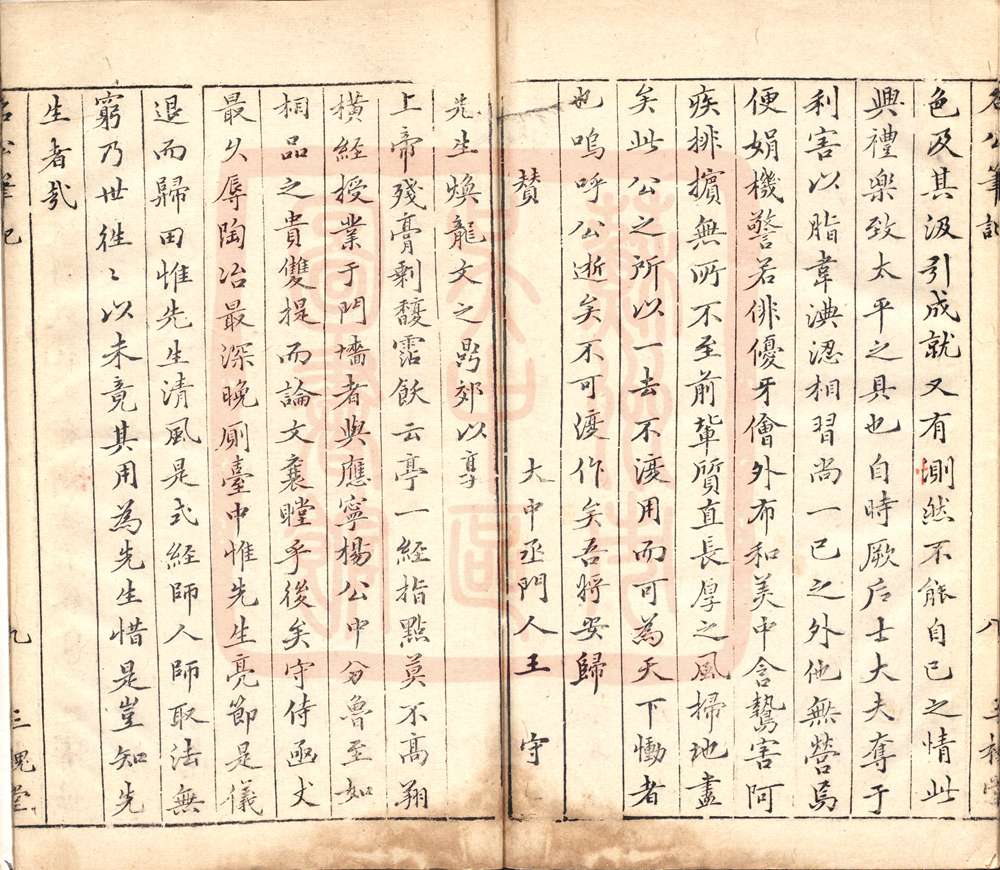 色及其汲引成就又有惻然不能自已之情此
興禮樂致太平之具也自時厥后士大夫奪于
利害以脂韋淟涊相習尚一已之外他無營焉
便娟機警若俳優牙儈外布和美中含鷙害阿
疾排擯無所不至前輩質直長厚之風掃地盡
矣此公之所以一去不復用而可為天下慟者
也嗚呼公逝矣不可復作矣吾將安歸
贊
大中丞門人王守
先生煥龍文之昺郊以享
上帝殘膏剩馥霑飫云亭一經指點莫不高翔
橫經授業于門墻者與應寧楊公中分魯至如
桐品之貴雙提而論文襄瞠乎後矣守侍函丈
最久辱陶冶最深晚厠臺中惟先生亮節是儀
退而歸田惟先生清風是式經師人師取法無
窮乃世徃〻以未竟其用為先生惜是豈知先
生者㢤
名公筆記
九
三槐堂
名公筆記
八
三槐堂